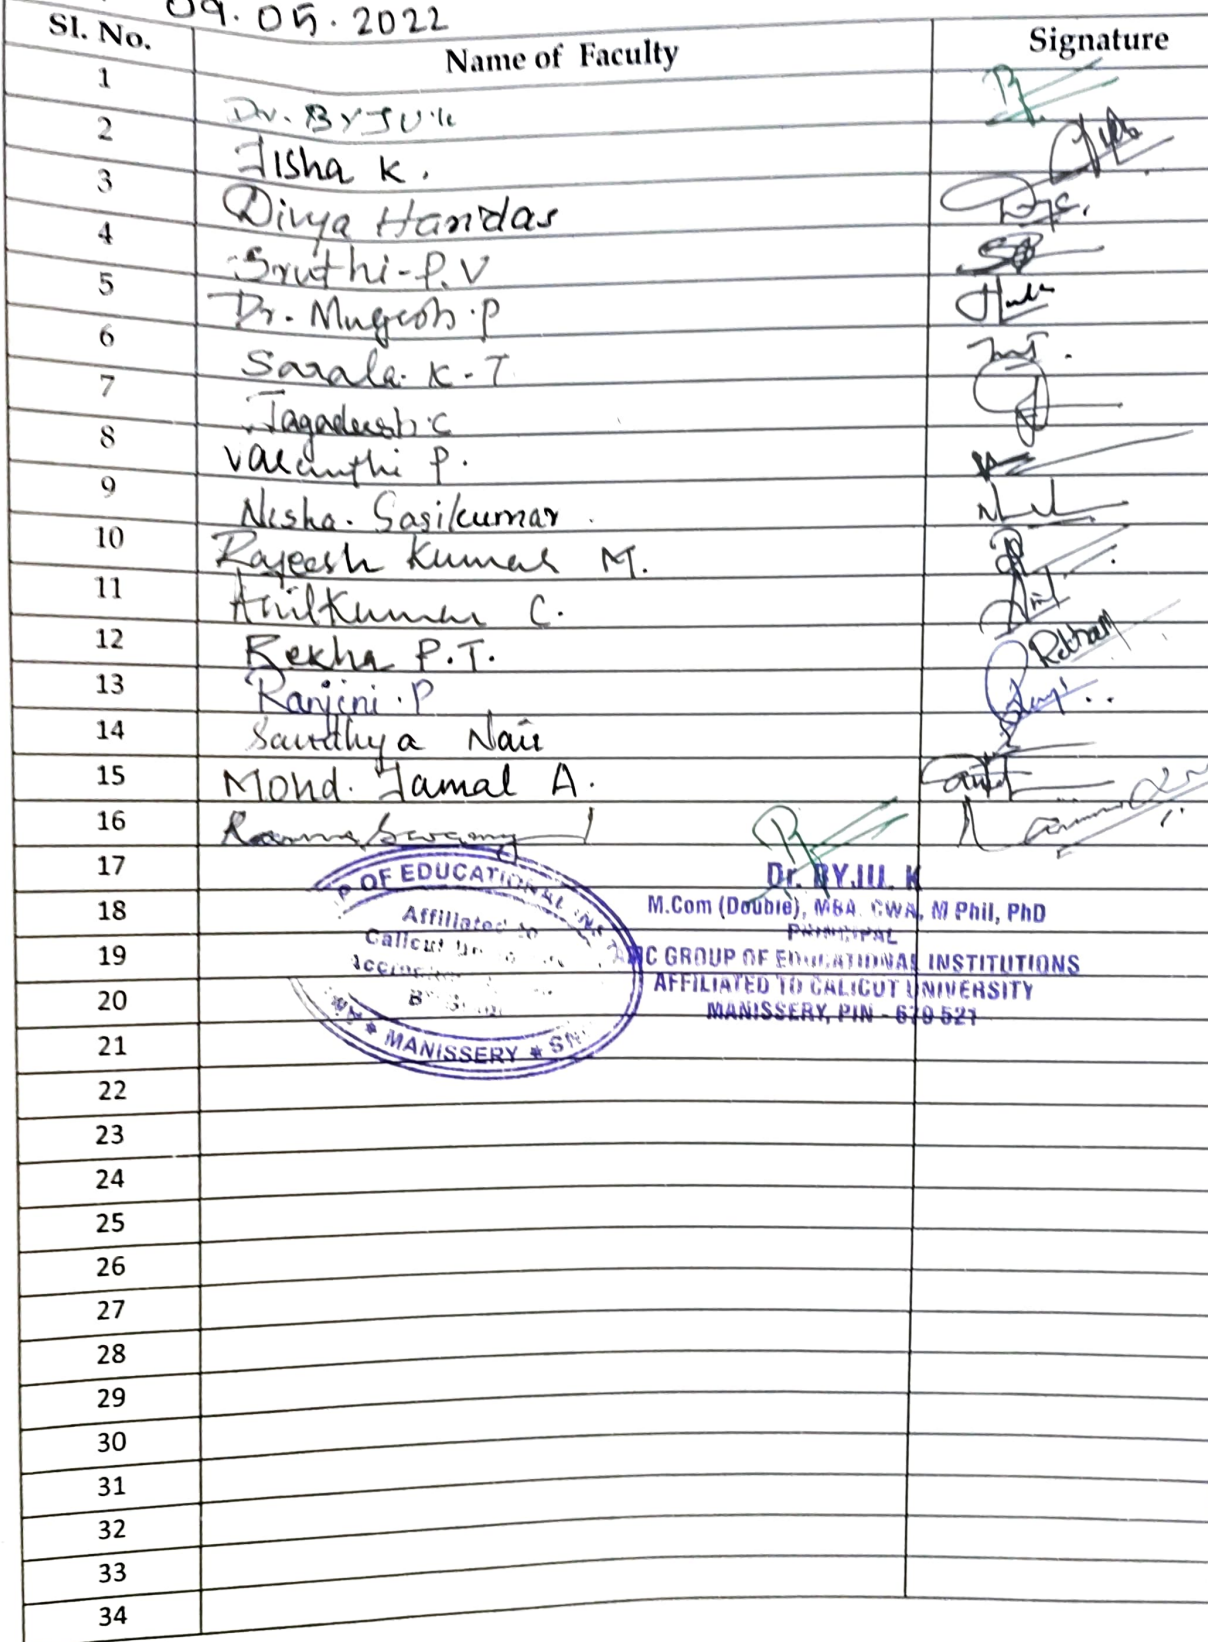 09.05.2022
Sl. No. Name of Faculty Signature
1 Dr. BYJU K
2 Jisha K.
3 Divya Haridas
4 Sruthi - P. V
5 Dr. Mugesh. P
6 Sarala. K. T
7 Jagadeesh. C
8 Vasanthi P.
9 Nisha. Sasikumar
10 Rajeesh Kumar M.
11 Anilkumar C.
12 Rekha P.T.
13 Ranjini. P
14 Sandhya Nair
15 Mohd. Jamal A.
16
17
18
19
20
21
22
23
24
25
26
27
28
29
30
31
32
33
34
P OF EDUCATIONAL INS
Affiliated to
Calicut
MANISSERY
Dr. BYJU. K
M.Com (Double), MBA. CWA, M Phil, PhD
PRINCIPAL
GROUP OF EDUCATIONAL INSTITUTIONS
AFFILIATED TO CALICUT UNIVERSITY
MANISSERY, PIN - 679 521